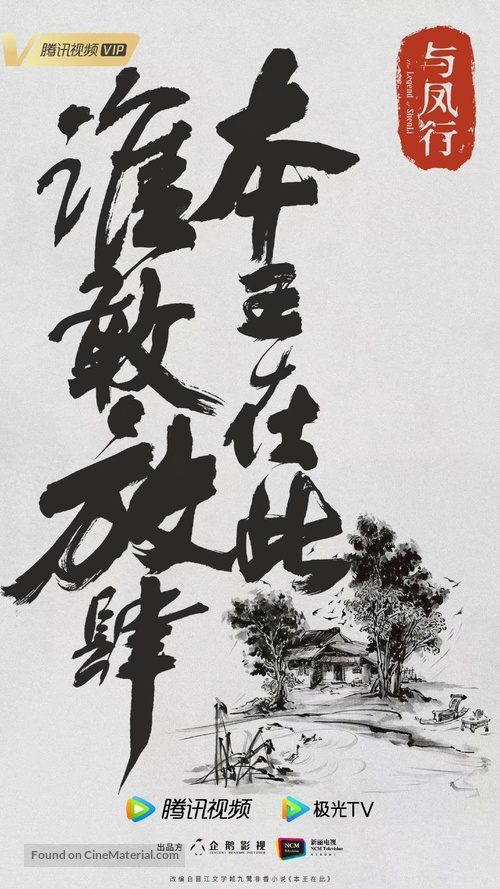 腾讯视频 VIP
与凤行
The Legend of ShenLi
本王在此
谁敢放肆
腾讯视频
极光TV
出品方
企鹅影视
NCM
新丽电视
NCM Television
改编自晋江文学城九鹭非香小说《本王在此》
Found on CineMaterial.com